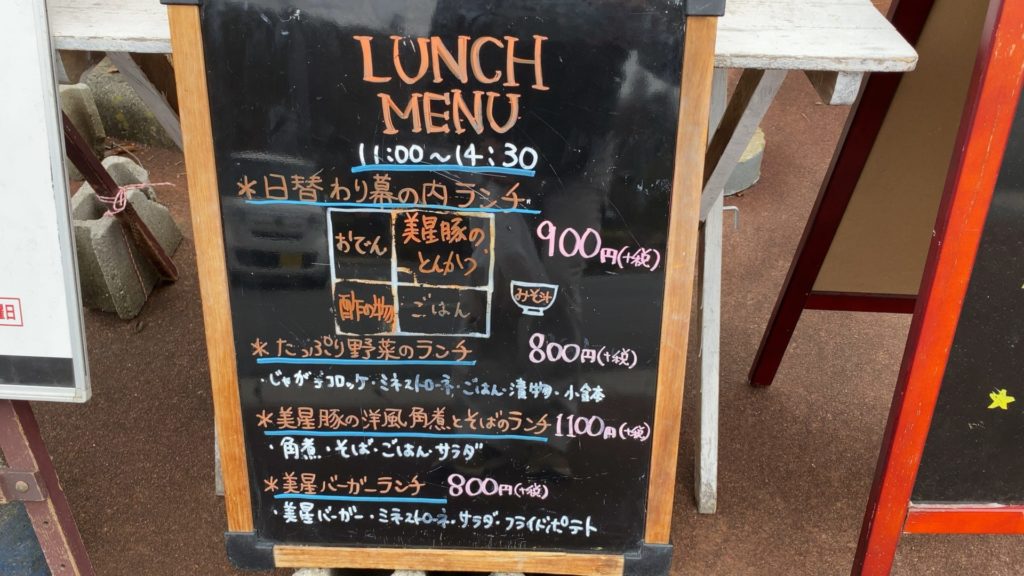 LUNCH
MENU
11:00~14:30
*日替わり幕の内ランチ
おでん
美星豚の
とんかつ
900円(+税)
酢の物
ごはん
みそ汁
*たっぷり野菜のランチ 800円(+税)
・じゃがコロッケ・ミネストローネ・ごはん・漬物・小鉢
*美星豚の洋風角煮とそばのランチ 1100円(+税)
・角煮・そば・ごはん サラダ
*美星バーガーランチ 800円(+税)
・美星バーガー・ミネストローネ・サラダ・フライドポテト
曜日